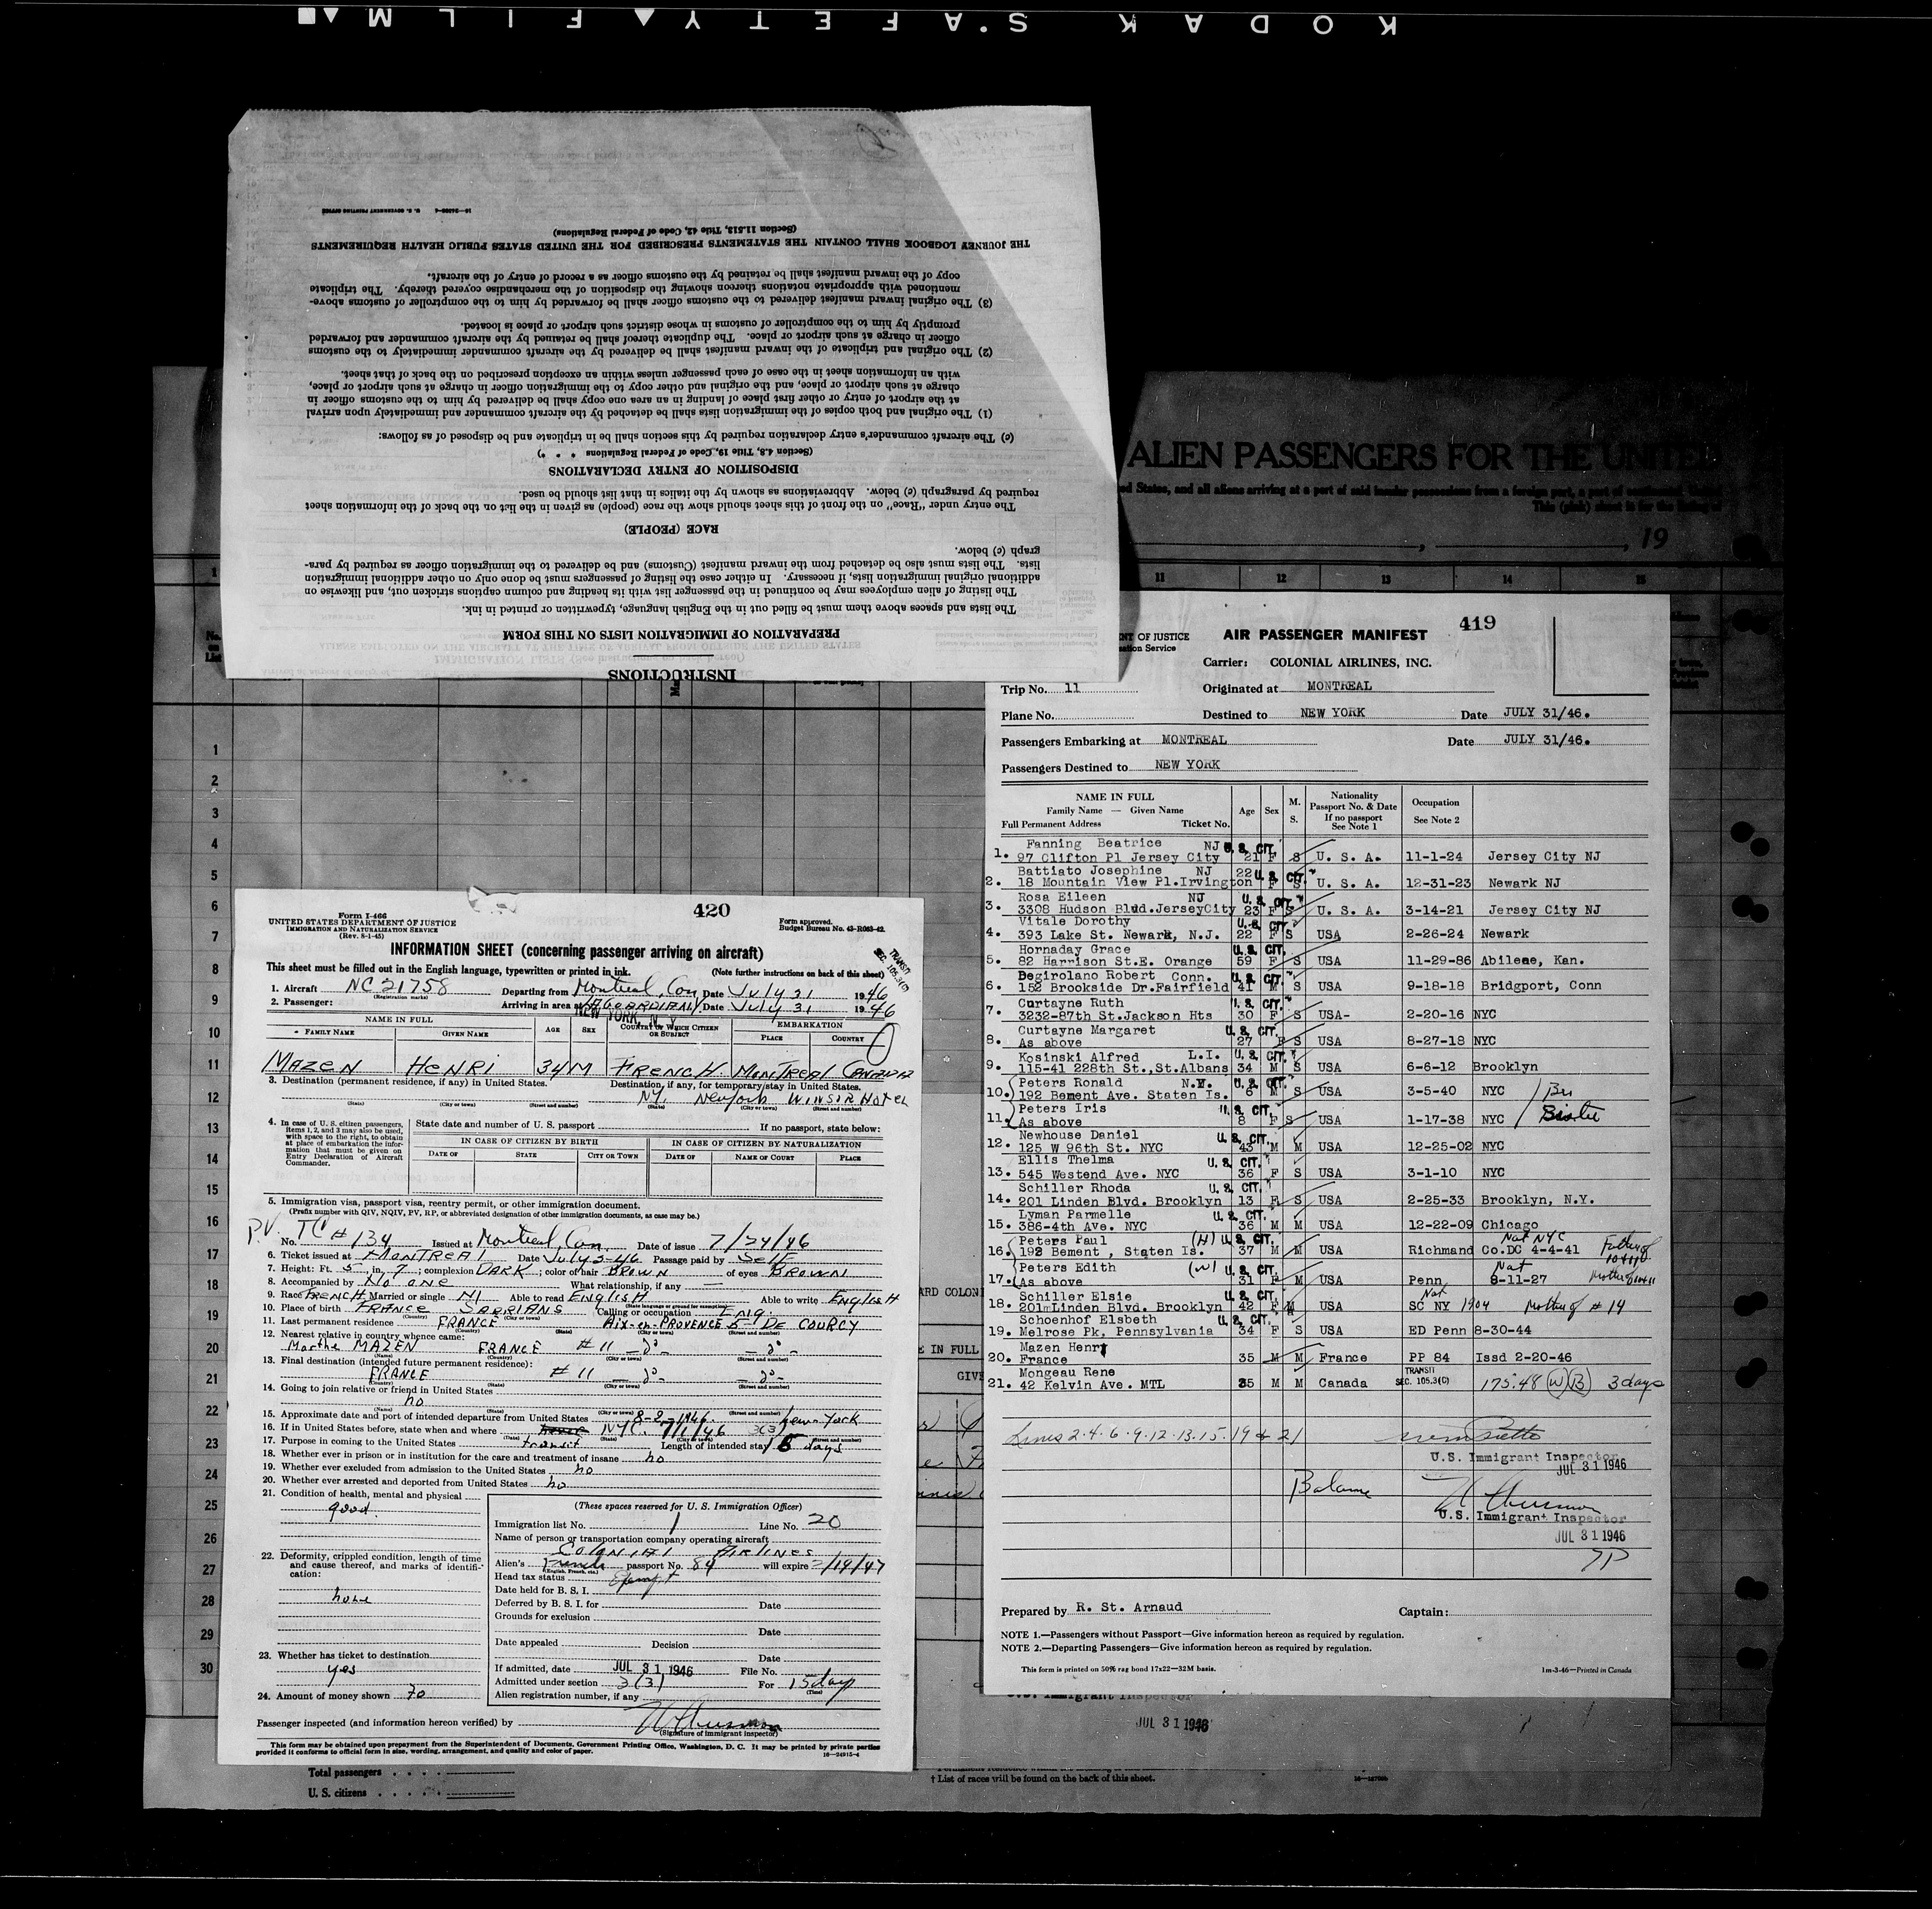 KODAK SAFETY FILM
INSTRUCTIONS
PREPARATION OF IMMIGRATION LISTS ON THIS FORM
The lists and spaces above them must be filled out in the English language, typewritten or printed in ink.
The listing of alien employees may be continued in the passenger list with its heading and column captions stricken out, and likewise on
additional original immigration lists, if necessary. In either case the listing of passengers must be done only on other additional immigration
lists. The lists must also be detached from the inward manifest (Customs) and be delivered to the immigration officer as required by para-
graph (c) below.
RACE (PEOPLE)
The entry under "Race" on the front of this sheet should show the race (people) as given in the list on the back of the information sheet
required by paragraph (c) below. Abbreviations as shown by the italics in that list should be used.
DISPOSITION OF ENTRY DECLARATIONS
(Section 4.8, Title 19, Code of Federal Regulations * * *)
(c) The aircraft commander's entry declaration required by this section shall be in triplicate and be disposed of as follows:
(1) The original and both copies of the immigration lists shall be detached by the aircraft commander and immediately upon arrival
at the airport of entry or other first place of landing in an area one copy shall be delivered by him to the customs officer in
charge at such airport or place, and the original and other copy to the immigration officer in charge at such airport or place,
with an information sheet in the case of each passenger unless within an exception prescribed on the back of that sheet.
(2) The original and triplicate of the inward manifest shall be delivered by the aircraft commander immediately to the customs
officer in charge at such airport or place. The duplicate thereof shall be retained by the aircraft commander and forwarded
promptly by him to the comptroller of customs in whose district such airport or place is located.
(3) The original inward manifest delivered to the customs officer shall be forwarded by him to the comptroller of customs above-
mentioned with appropriate notations thereon showing the disposition of the merchandise covered thereby. The triplicate
copy of the inward manifest shall be retained by the customs officer as a record of entry of the aircraft.
THE JOURNEY LOGBOOK SHALL CONTAIN THE STATEMENTS PRESCRIBED FOR THE UNITED STATES PUBLIC HEALTH REQUIREMENTS
(Section 11.513, Title 42, Code of Federal Regulations)
ALIEN PASSENGERS FOR THE UNITED
ed States, and all aliens arriving at a port of said insular possessions from a foreign port, a port of continental
This (pink) sheet is for the listing of
, 19
11 12 13 14 15
419
NT OF JUSTICE
AIR PASSENGER MANIFEST
Carrier: COLONIAL AIRLINES, INC.
Trip No. 11 Originated at MONTREAL
Plane No. Destined to NEW YORK Date JULY 31/46.
Passengers Embarking at MONTREAL Date JULY 31/46.
Passengers Destined to NEW YORK
NAME IN FULL
Family Name — Given Name
Full Permanent Address Ticket No.
Age Sex M. S.
Nationality
Passport No. & Date
If no passport
See Note 1
Occupation
See Note 2
Fanning Beatrice NJ U. S. CIT.
1. 97 Clifton Pl Jersey City 21 F S U. S. A. 11-1-24 Jersey City NJ
Battiato Josephine NJ 22 U. S. CIT.
2. 18 Mountain View Pl.Irvington F S U. S. A. 12-31-23 Newark NJ
Rosa Eileen NJ U. S. CIT.
3. 3308 Hudson Blvd.JerseyCity 23 F S U. S. A. 3-14-21 Jersey City NJ
Vitale Dorothy U. S. CIT.
4. 393 Lake St. Newark, N.J. 22 F S USA 2-26-24 Newark
Hornaday Grace U. S. CIT.
5. 82 Harrison St.E. Orange 59 F S USA 11-29-86 Abilene, Kan.
Degirolano Robert Conn. U. S. CIT.
6. 152 Brookside Dr.Fairfield 41 M S USA 9-18-18 Bridgport, Conn
Curtayne Ruth U. S. CIT.
7. 3232-87th St.Jackson Hts 30 F S USA- 2-20-16 NYC
Curtayne Margaret U. S. CIT.
8. As above 27 F S USA 8-27-18 NYC
Kosinski Alfred L.I. U. S. CIT.
9. 115-41 228th St.,St.Albans 34 M S USA 6-6-12 Brooklyn
Peters Ronald N.Y. U. S. CIT.
10. 192 Bement Ave. Staten Is. 6 M S USA 3-5-40 NYC
Peters Iris U. S. CIT.
11. As above 8 F S USA 1-17-38 NYC
Newhouse Daniel U. S. CIT.
12. 125 W 96th St. NYC 43 M M USA 12-25-02 NYC
Ellis Thelma U. S. CIT.
13. 545 Westend Ave. NYC 36 F S USA 3-1-10 NYC
Schiller Rhoda U. S. CIT.
14. 201 Linden Blvd. Brooklyn 13 F S USA 2-25-33 Brooklyn, N.Y.
Lyman Parmelle U. S. CIT.
15. 386-4th Ave. NYC 36 M M USA 12-22-09 Chicago
Peters Paul (H) U. S. CIT. Nat NYC
16. 192 Bement , Staten Is. 37 M M USA Richmand Co.DC 4-4-41 Father of 10+11
Peters Edith (W) U. S. CIT. Nat
17. As above 31 F M USA Penn 8-11-27 Mother of 10+11
Schiller Elsie U. S. CIT. Nat
18. 201 Linden Blvd. Brooklyn 42 F M USA SC NY 1904 Mother of # 14
Schoenhof Elsbeth U. S. CIT.
19. Melrose Pk, Pennsylvania 34 F S USA ED Penn 8-30-44
Mazen Henri
20. France 35 M M France PP 84 Issd 2-20-46
Mongeau Rene TRANSIT
21. 42 Kelvin Ave. MTL 35 M M Canada SEC. 105.3(C) 175.48 (W)(B) 3 days
Lines 2·4·6·9·12·13·15·19 & 21
U.S. Immigrant Inspector
JUL 31 1946
Balance
U.S. Immigrant Inspector
JUL 31 1946
Prepared by R. St. Arnaud Captain:
NOTE 1.—Passengers without Passport—Give information hereon as required by regulation.
NOTE 2.—Departing Passengers—Give information hereon as required by regulation.
This form is printed on 50% rag bond 17x22—32M basis. 1m-3-46—Printed in Canada
JUL 31 1946
† List of races will be found on the back of this sheet.
420
Form I-466
UNITED STATES DEPARTMENT OF JUSTICE
IMMIGRATION AND NATURALIZATION SERVICE
(Rev. 8-1-45)
Form approved.
Budget Bureau No. 43-R063-42.
INFORMATION SHEET (concerning passenger arriving on aircraft)
TRANSIT
SEC. 105.3(C)
This sheet must be filled out in the English language, typewritten or printed in ink. (Note further instructions on back of this sheet)
1. Aircraft NC 21758 Departing from Montreal, Can Date July 31 1946
(Registration marks)
2. Passenger: Arriving in area at LAGUARDIA Date July 31 1946
NEW YORK, N. Y.
NAME IN FULL AGE SEX COUNTRY OF WHICH CITIZEN OR SUBJECT EMBARKATION
FAMILY NAME GIVEN NAME PLACE COUNTRY
MAZEN HENRI 34 M FRENCH MONTREAL CANADA
3. Destination (permanent residence, if any) in United States. Destination, if any, for temporary stay in United States.
NY. New York WINSIR HOTEL
(State) (City or town) (Street and number) (State) (City or town) (Street and number)
4. In case of U. S. citizen passengers, Items 1, 2, and 3 may also be used, with space to the right, to obtain at place of embarkation the information that must be given on Entry Declaration of Aircraft Commander.
State date and number of U. S. passport If no passport, state below:
IN CASE OF CITIZEN BY BIRTH IN CASE OF CITIZEN BY NATURALIZATION
DATE OF STATE CITY OR TOWN DATE OF NAME OF COURT PLACE
5. Immigration visa, passport visa, reentry permit, or other immigration document.
(Prefix number with QIV, NQIV, PV, RP, or abbreviated designation of other immigration documents, as case may be.)
P.V. No. TC # 134 Issued at Montreal, Can. Date of issue 7/24/46
6. Ticket issued at MONTREAL Date July 3-46 Passage paid by Self
7. Height: Ft. 5 in. 7; complexion DARK; color of hair BROWN of eyes BROWN
8. Accompanied by No one What relationship, if any —
9. Race FRENCH Married or single M Able to read ENGLISH Able to write ENGLISH
10. Place of birth FRANCE SARRIANS Calling or occupation Eng.
11. Last permanent residence FRANCE Aix-en-PROVENCE 5 DE COURCY
(Country) (State) (City or town) (Street and number)
12. Nearest relative in country whence came:
Marthe MAZEN FRANCE # 11 — do — — do —
13. Final destination (intended future permanent residence):
FRANCE # 11 — do — — do —
14. Going to join relative or friend in United States
no
15. Approximate date and port of intended departure from United States 8-2-1946. New York
16. If in United States before, state when and where NYC. 7/1/46 3(3)
17. Purpose in coming to the United States transit Length of intended stay 5 days
18. Whether ever in prison or in institution for the care and treatment of insane no
19. Whether ever excluded from admission to the United States no
20. Whether ever arrested and deported from United States no
21. Condition of health, mental and physical
good.
22. Deformity, crippled condition, length of time and cause thereof, and marks of identification:
none
23. Whether has ticket to destination
yes
24. Amount of money shown 70
(These spaces reserved for U. S. Immigration Officer)
Immigration list No. 1 Line No. 20
Name of person or transportation company operating aircraft
COLONIAL AIRLINES
Alien's French passport No. 84 will expire 2/19/47
(English, French, etc.)
Head tax status Exempt
Date held for B. S. I.
Deferred by B. S. I. for Date
Grounds for exclusion
Date
Date appealed Decision
Date
If admitted, date JUL 31 1946 File No.
Admitted under section 3(3) For 15 day
(Time)
Alien registration number, if any
Passenger inspected (and information hereon verified) by
(Signature of immigrant inspector)
This form may be obtained upon prepayment from the Superintendent of Documents, Government Printing Office, Washington, D. C. It may be printed by private parties
provided it conforms to official form in size, wording, arrangement, and quality and color of paper. 16—24915-4
Total passengers . . . .
U. S. citizens . . . . .
1
2
3
4
5
6
7
8
9
10
11
12
13
14
15
16
17
18
19
20
21
22
23
24
25
26
27
28
29
30